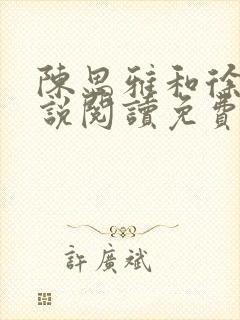 陳思雅和徐
說閱讀免費
許廣斌